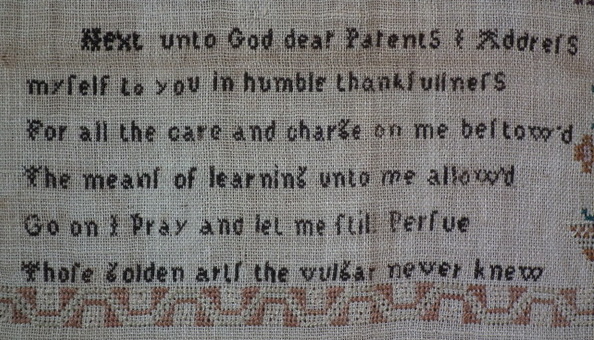 Next unto God dear Parents I Addreſs
myſelf to you in humble thankſullneſs
For all the care and charge on me beſtow'd
The meanſ of learning unto me allow'd
Go on I Pray and let me ſtil Perſue
Thoſe Golden artſ the vulgar never knew